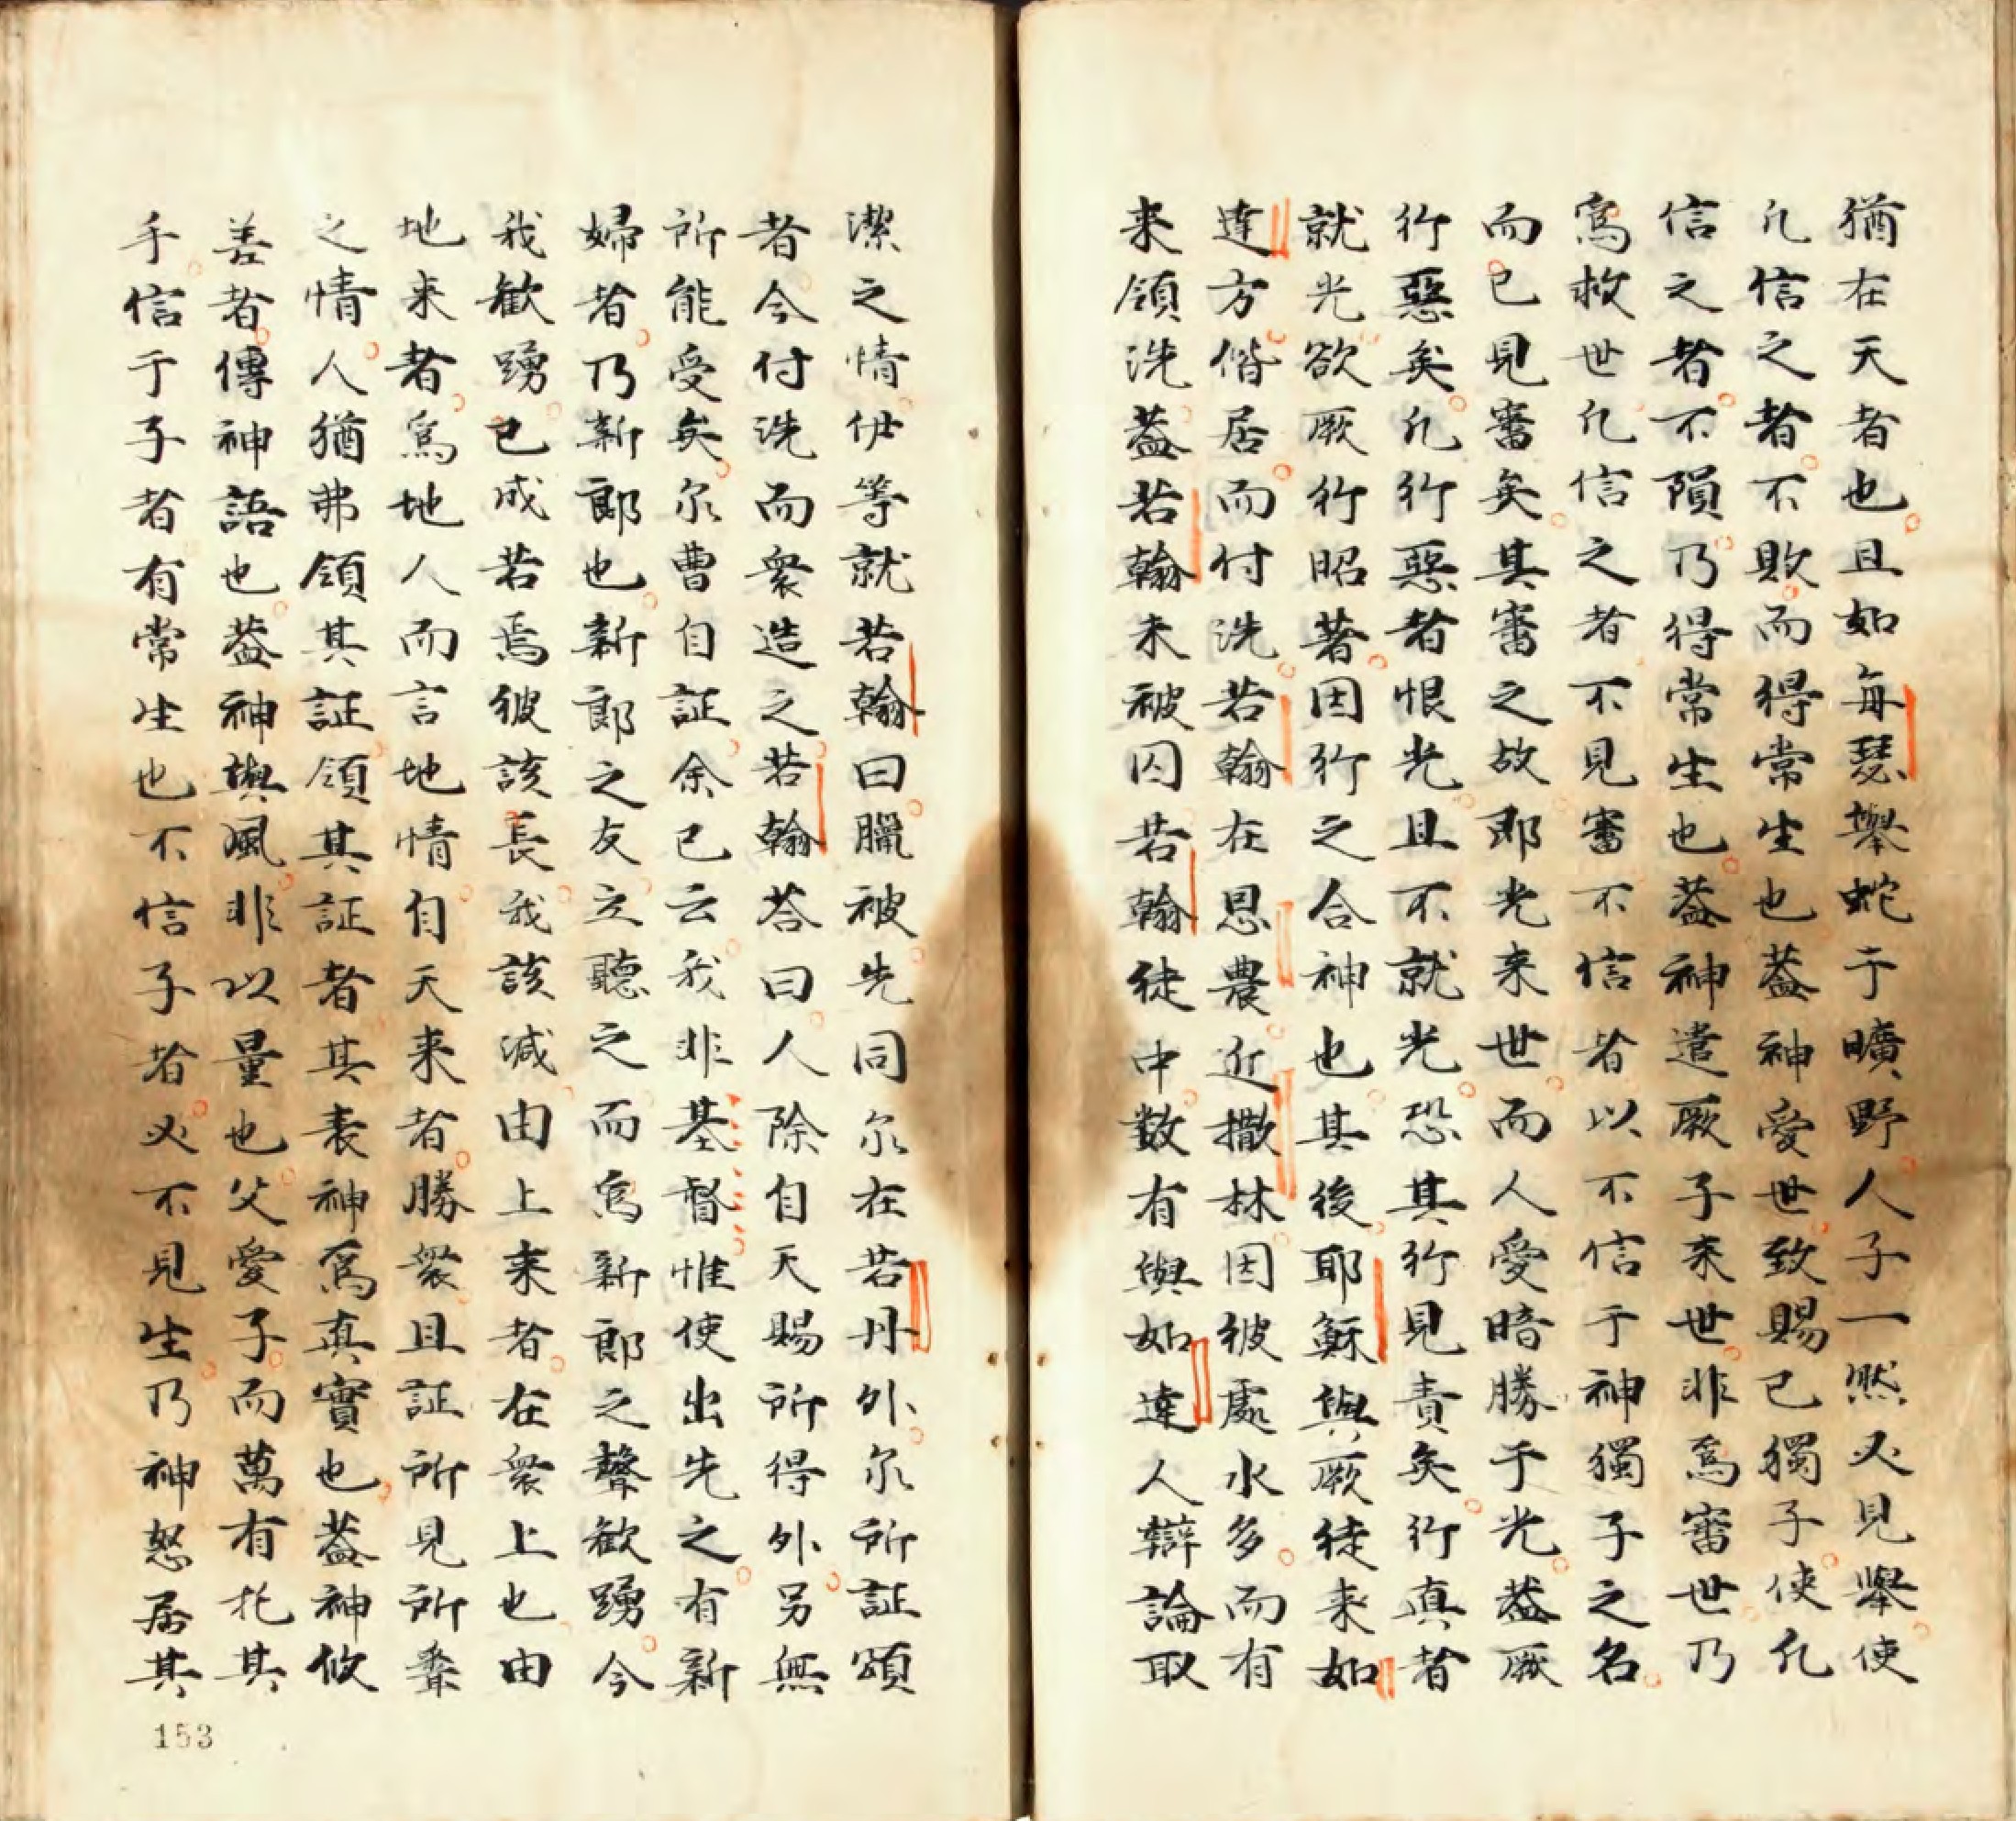 猶在天者也且如每瑟舉蛇于曠野人子一然必見舉使
凢信之者不敗而得常生也葢神愛世致賜己獨子使凢
信之者不隕乃得常生也葢神遣厥子来世非爲審世乃
爲救世凢信之者不見審不信者以不信于神獨子之名
而已見審矣其審之故即光来世而人愛暗勝于光葢厥
行惡矣凢行惡者恨光且不就光恐其行見責矣行真者
就光欲厥行昭著因行之合神也其後耶穌與厥徒来如
達方偕居而付洗若翰在恩農近撒林因彼處水多而有
来領洗葢若翰未被囚若翰徒中数有與如達人辯論取
潔之情伊等就若翰曰臘被先同尔在若丹外尔所証頌
者今付洗而衆造之若翰荅曰人除自天賜所得外另無
所能受矣尔曹自証余已云我非基督惟使出先之有新
婦者乃新郎也新郎之友立聽之而爲新郎之聲歓踴今
我歓踴已成若焉彼該長我該减由上来者在衆上也由
地来者爲地人而言地情自天来者勝衆且証所見所聋
之情人猶弗領其証領其証者其表神爲真實也葢神攸
差者傳神語也葢神與風非以量也父愛子而萬有托其
手信于子者有常生也不信子者必不見生乃神怒居其
153